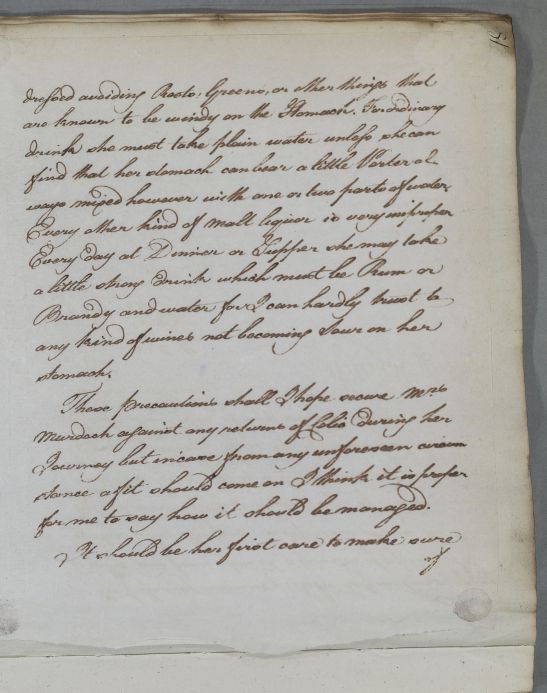 dressed avoiding Roots, Greens, or other things that
are known to be windy on the Stomach. For ordinary
drink she must take plain water unless she can
find that her stomach can bear a little Porter al
ways mixed however with one or two parts of water.
Every other kind of malt liquor is very improper
Every day at Dinner or Supper she may take
a little strong drink which must be Rum or
Brandy and water for I can hardly trust to
any kind of wines not becoming sour on her
stomach.
These precautions shall I hope secure Mrs
Murdoch against any returns of Colic during her
Journey but incase from any unforeseen circum
stance a fit should come on I think it is proper
for me to say how it should be managed.
It should be her first care to make sure
of